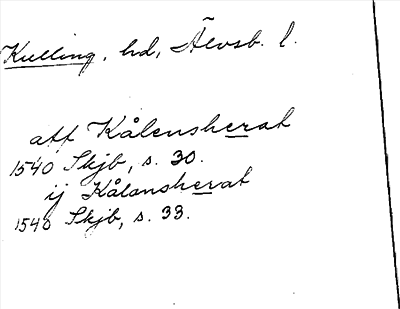 Kulling, hd, Älvsb. l.
att Kålensherat
1540 Skjb, s. 30.
ij Kålansherat
1540 Skjb, s. 33.